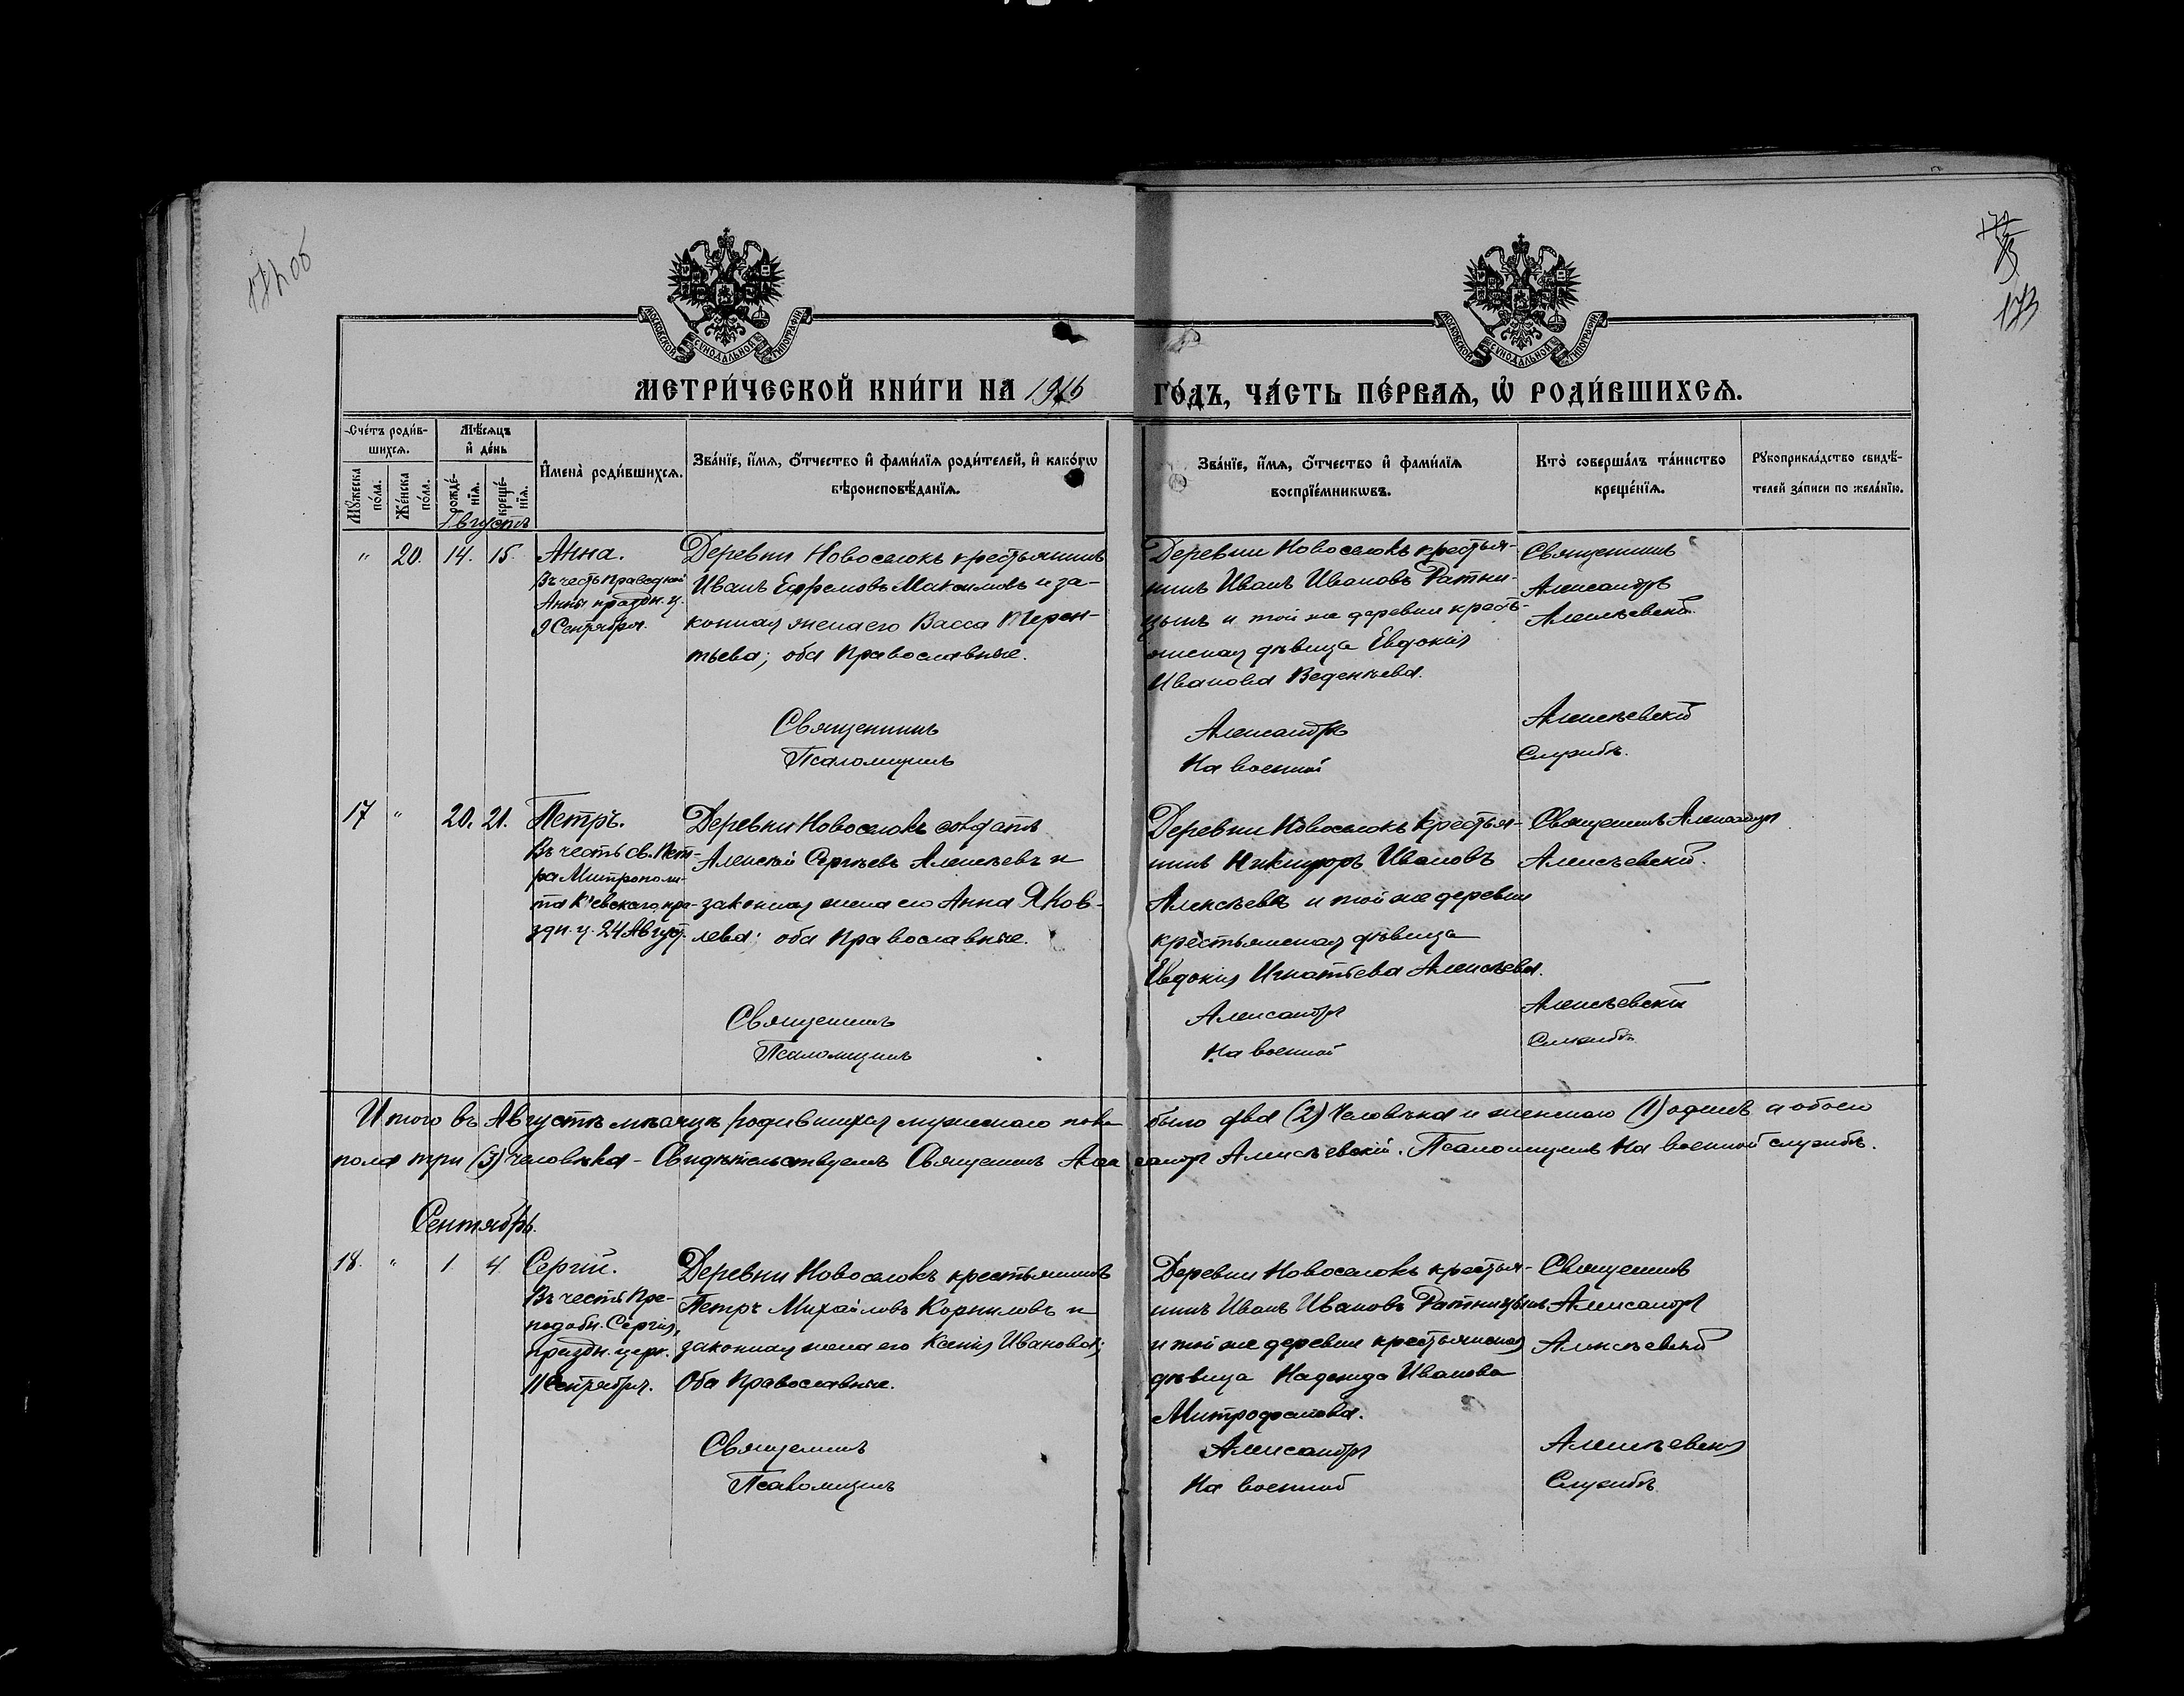 172 об
173
МОСКОВСКОЙ СѴНОДАЛЬНОЙ ТИПОГРАФІИ
МОСКОВСКОЙ СѴНОДАЛЬНОЙ ТИПОГРАФІИ
МЕТРИ́ЧЕСКОЙ КНИ́ГИ НА 1916 ГО́ДЪ, ЧА́СТЬ ПЕ́РВАѦ, Ѡ҆ РОДИ́ВШИХСѦ.
Сче́тъ роди́в-
шихсѧ.
Мꙋ́жеска
по́ла.
Же́нска
по́ла.
Мѣ́сѧцъ
и҆ де́нь
рожде́-
нїѧ.
креще́-
нїѧ.
И҆мена̀ роди́вшихсѧ.
Зва́нїе, и҆́мѧ, ѻ҆́тчество и҆ фами́лїѧ роди́телей, и҆ како́гѡ
вѣроисповѣ́данїѧ.
Зва́нїе, и҆́мѧ, ѻ҆́тчество и҆ фами́лїѧ
воспрїе́мникѡвъ.
Кто̀ соверша́лъ та́инство
креще́нїѧ.
Рꙋкоприкла́дство свидѣ́-
телей за́писи по жела́нїю.
Августъ
" 20. 14. 15.
Анна.
Въ честь Праведной
Анны праздн. ц.
9 Сентября.
Деревни Новоселокъ крестьянинъ
Иванъ Ефремовъ Максимовъ и за-
конная жена его Васса Терен-
тьева; оба Православные.
Деревни Новоселокъ крестья-
нинъ Иванъ Ивановъ Ратни-
цынъ и той же деревни кресть-
янская дѣвица Евдокія
Иванова Веденѣева.
Священникъ
Александръ
Алексѣевскій.
Священникъ Александръ Алексѣевскій
Псаломщикъ На военной Службѣ.
17 " 20. 21.
Петръ.
Въ честь св. Пет-
ра Митрополи-
та Кіевскаго, пра-
здн. ц. 24 Август.
Деревни Новоселокъ солдатъ
Алексѣй Сергѣевъ Алексѣевъ и
законная жена его Анна Яков-
лева; оба Православные.
Деревни Новоселокъ крестья-
нинъ Никифоръ Ивановъ
Алексѣевъ и той же деревни
крестьянская дѣвица
Евдокия Игнатьева Алексѣева.
Священникъ Александръ
Алексѣевскій.
Священникъ Александръ Алексѣевскій
Псаломщикъ На военной Службѣ
Итого въ Августѣ мѣсяцѣ родившихся мужескаго пола было два (2) человѣка и женскаго (1) одинъ а обоего
пола три (3) человѣка - Свидѣтельствуемъ Священникъ Александръ Алексѣевскій. Псаломщикъ На военной службѣ.
Сентябрь.
18. " 1. 4
Сергій.
Въ честь Пре-
подобн. Сергія,
праздн. церк.
11 Сентября.
Деревни Новоселокъ крестьянинъ
Петръ Михайловъ Корниловъ и
законная жена его Ксенія Иванова;
Оба Православные.
Деревни Новоселокъ крестья-
нинъ Иванъ Ивановъ Ратницынъ
и той же деревни крестьянская
дѣвица Надежда Иванова
Митрофанова.
Священникъ
Александръ
Алексѣевскій
Священникъ Александръ Алексѣевскій
Псаломщикъ На военной Службѣ